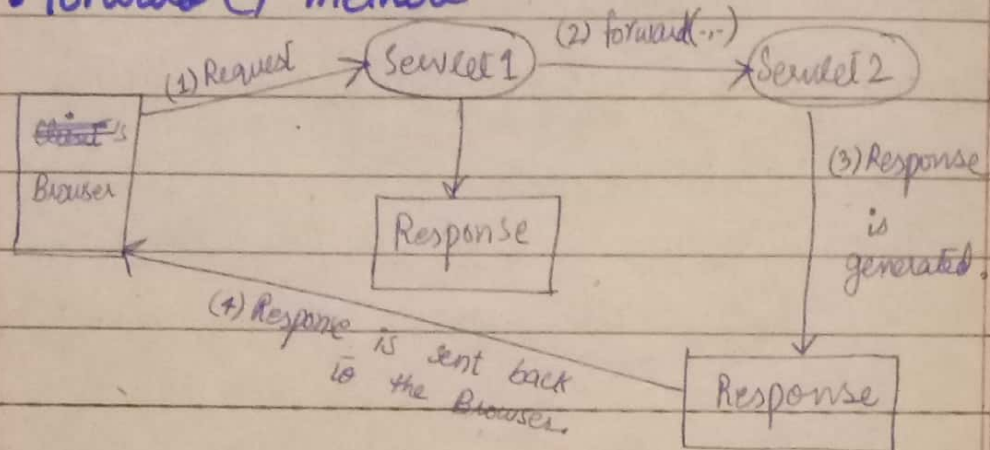 forward () method
(1) Request
Servlet 1
(2) forward(-,-)
Servlet 2
's
Browser
Response
(3) Response
is
generated.
(4) Response is sent back
to the Browser.
Response